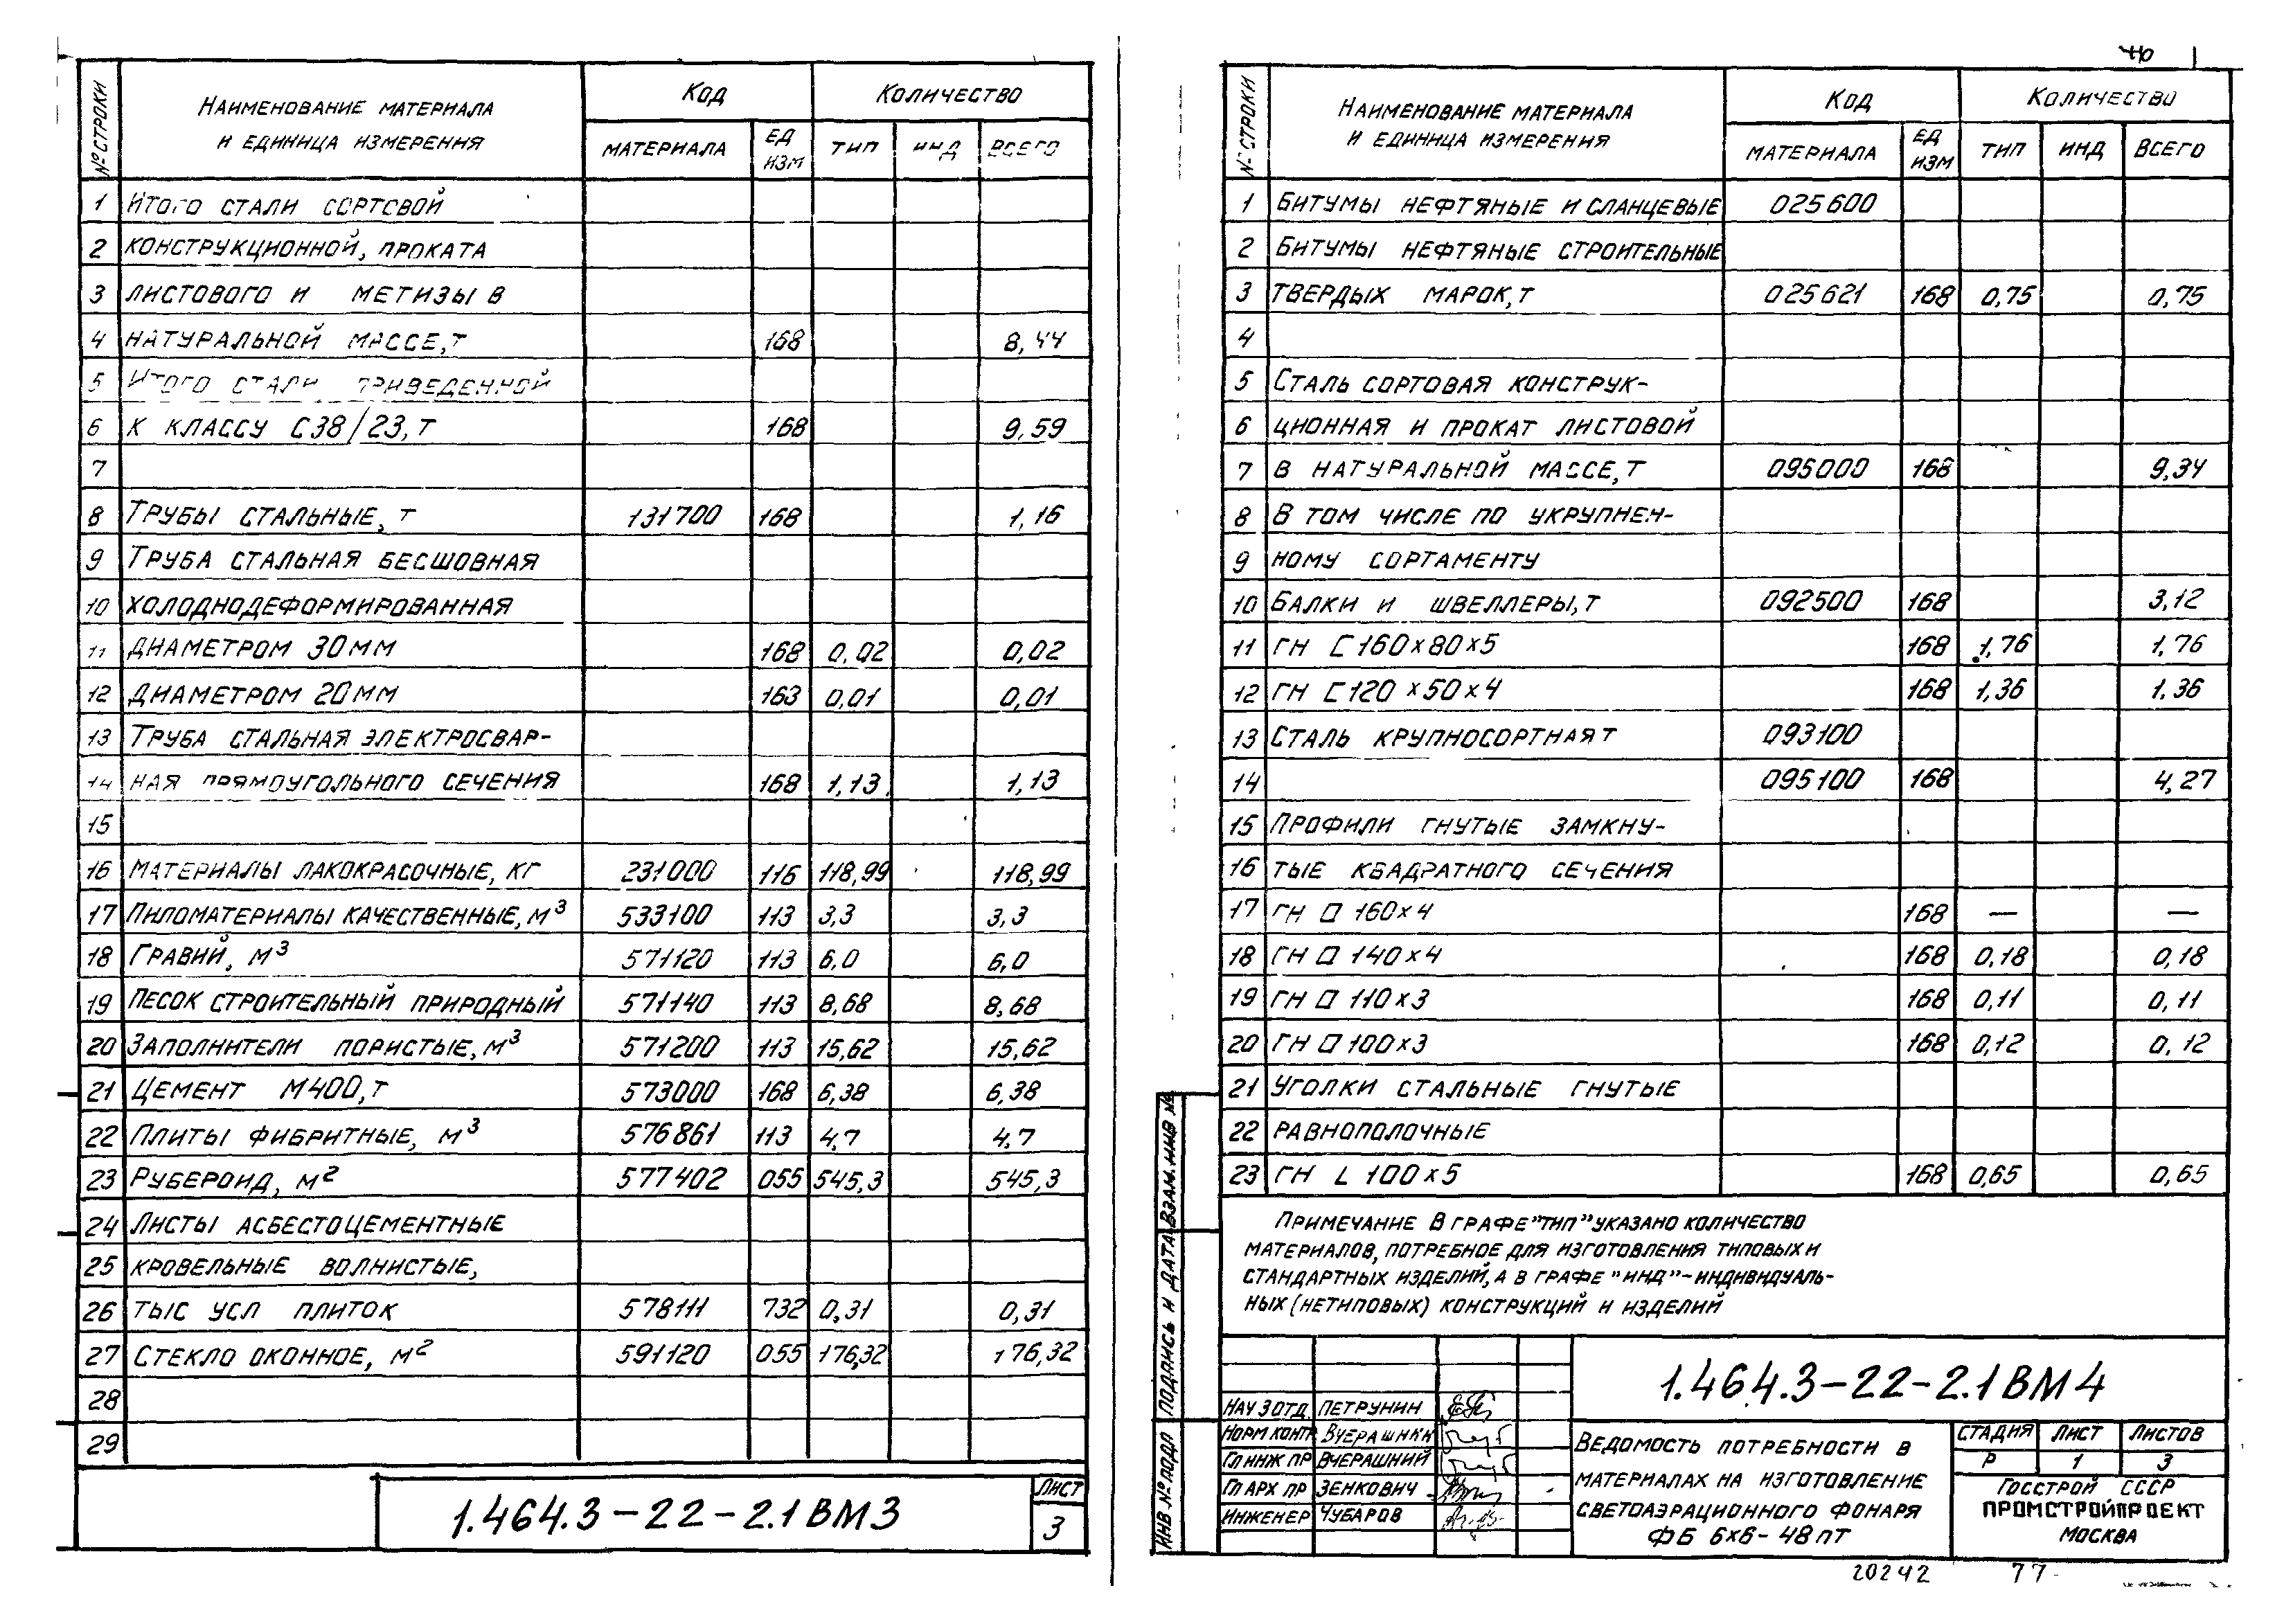 № СТРОКИ НАИМЕНОВАНИЕ МАТЕРИАЛА И ЕДИНИЦА ИЗМЕРЕНИЯ КОД КОЛИЧЕСТВО
МАТЕРИАЛА ЕД ИЗМ ТИП ИНД ВСЕГО
1 ИТОГО СТАЛИ СОРТОВОЙ
2 КОНСТРУКЦИОННОЙ, ПРОКАТА
3 ЛИСТОВОГО И МЕТИЗЫ В
4 НАТУРАЛЬНОЙ МАССЕ, Т 168 8,44
5 ИТОГО СТАЛИ ПРИВЕДЕННОЙ
6 К КЛАССУ С38/23, Т 168 9,59
7
8 ТРУБЫ СТАЛЬНЫЕ, Т 131700 168 1,16
9 ТРУБА СТАЛЬНАЯ БЕСШОВНАЯ
10 ХОЛОДНОДЕФОРМИРОВАННАЯ
11 ДИАМЕТРОМ 30 ММ 168 0,02 0,02
12 ДИАМЕТРОМ 20 ММ 163 0,01 0,01
13 ТРУБА СТАЛЬНАЯ ЭЛЕКТРОСВАР-
14 НАЯ ПРЯМОУГОЛЬНОГО СЕЧЕНИЯ 168 1,13 1,13
15
16 МАТЕРИАЛЫ ЛАКОКРАСОЧНЫЕ, КГ 231000 116 118,99 118,99
17 ПИЛОМАТЕРИАЛЫ КАЧЕСТВЕННЫЕ, М³ 533100 113 3,3 3,3
18 ГРАВИЙ, М³ 571120 113 6,0 6,0
19 ПЕСОК СТРОИТЕЛЬНЫЙ ПРИРОДНЫЙ 571140 113 8,68 8,68
20 ЗАПОЛНИТЕЛИ ПОРИСТЫЕ, М³ 571200 113 15,62 15,62
21 ЦЕМЕНТ М400, Т 573000 168 6,38 6,38
22 ПЛИТЫ ФИБРИТНЫЕ, М³ 576861 113 4,7 4,7
23 РУБЕРОИД, М² 577402 055 545,3 545,3
24 ЛИСТЫ АСБЕСТОЦЕМЕНТНЫЕ
25 КРОВЕЛЬНЫЕ ВОЛНИСТЫЕ,
26 ТЫС УСЛ ПЛИТОК 578111 732 0,31 0,31
27 СТЕКЛО ОКОННОЕ, М² 591120 055 176,32 176,32
28
29
1.464.3-22-2.1ВМ3 ЛИСТ 3
№ СТРОКИ НАИМЕНОВАНИЕ МАТЕРИАЛА И ЕДИНИЦА ИЗМЕРЕНИЯ КОД КОЛИЧЕСТВО
МАТЕРИАЛА ЕД ИЗМ ТИП ИНД ВСЕГО
1 БИТУМЫ НЕФТЯНЫЕ И СЛАНЦЕВЫЕ 025600
2 БИТУМЫ НЕФТЯНЫЕ СТРОИТЕЛЬНЫЕ
3 ТВЕРДЫХ МАРОК, Т 025621 168 0,75 0,75
4
5 СТАЛЬ СОРТОВАЯ КОНСТРУК-
6 ЦИОННАЯ И ПРОКАТ ЛИСТОВОЙ
7 В НАТУРАЛЬНОЙ МАССЕ, Т 095000 168 9,34
8 В ТОМ ЧИСЛЕ ПО УКРУПНЕН-
9 НОМУ СОРТАМЕНТУ
10 БАЛКИ И ШВЕЛЛЕРЫ, Т 092500 168 3,12
11 ГН [160×80×5 168 1,76 1,76
12 ГН [120×50×4 168 1,36 1.36
13 СТАЛЬ КРУПНОСОРТНАЯ Т 093100
14 095100 168 4,27
15 ПРОФИЛИ ГНУТЫЕ ЗАМКНУ-
16 ТЫЕ КВАДРАТНОГО СЕЧЕНИЯ
17 ГН □ 160×4 168 — —
18 ГН □ 140×4 168 0,18 0,18
19 ГН □ 110×3 168 0,11 0,11
20 ГН □ 100×3 168 0,12 0,12
21 УГОЛКИ СТАЛЬНЫЕ ГНУТЫЕ
22 РАВНОПОЛОЧНЫЕ
23 ГН L 100×5 168 0,65 0,65
ПРИМЕЧАНИЕ В ГРАФЕ "ТИП" УКАЗАНО КОЛИЧЕСТВО
МАТЕРИАЛОВ, ПОТРЕБНОЕ ДЛЯ ИЗГОТОВЛЕНИЯ ТИПОВЫХ И
СТАНДАРТНЫХ ИЗДЕЛИЙ, А В ГРАФЕ "ИНД" - ИНДИВИДУАЛЬ-
НЫХ (НЕТИПОВЫХ) КОНСТРУКЦИЙ И ИЗДЕЛИЙ
ВЗАМ. ИНВ №
ПОДПИСЬ И ДАТА
ИНВ № ПОДЛ
НАЧ ЗОТД ПЕТРУНИН
НОРМ КОНТР ВЧЕРАШНИЙ
ГЛ ИНЖ ПР ВЧЕРАШНИЙ
ГЛ АРХ ПР ЗЕНКОВИЧ
ИНЖЕНЕР ЧУБАРОВ
1.464.3-22-2.1ВМ4
ВЕДОМОСТЬ ПОТРЕБНОСТИ В
МАТЕРИАЛАХ НА ИЗГОТОВЛЕНИЕ
СВЕТОАЭРАЦИОННОГО ФОНАРЯ
ФБ 6×6-48ПТ
СТАДИЯ ЛИСТ ЛИСТОВ
Р 1 3
ГОССТРОЙ СССР
ПРОМСТРОЙПРОЕКТ
МОСКВА
20242 77